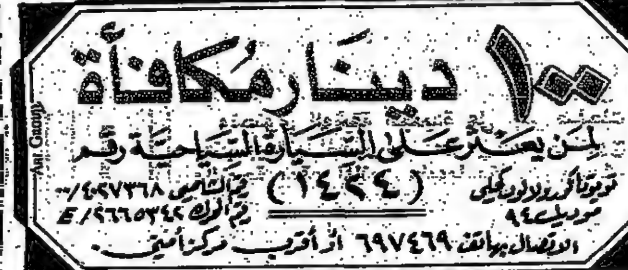 ١٠٠ دينار مكافأة
لمن يعثر على السيارة السياحية رقم
(١٤٢٤)
تويوتا كورولا لون كحلي
موديل ٩٤
رقم الشاصي ٤٠٢٧٣٦٨/٠٠
رقم المحرك E/٢٦٦٥٣٤٢
الاتصال بهاتف ٦٩٧٤٦٩ أو أقرب مركز أمني.